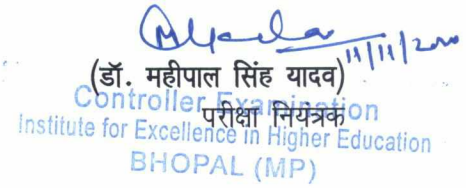 11/11/2020
(डॉ. महीपाल सिंह यादव)
Controller Examination
परीक्षा नियंत्रक
Institute for Excellence in Higher Education
BHOPAL (MP)